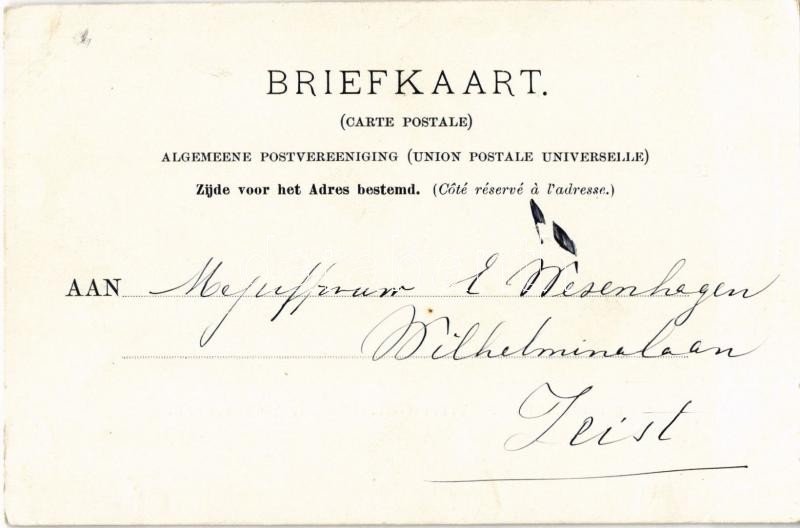 BRIEFKAART.
(CARTE POSTALE)
ALGEMEENE POSTVEREENIGING (UNION POSTALE UNIVERSELLE)
Zijde voor het Adres bestemd. (Côté réservé à l'adresse.)
AAN Mejuffrouw E Wesenhagen
Wilhelminalaan
Zeist